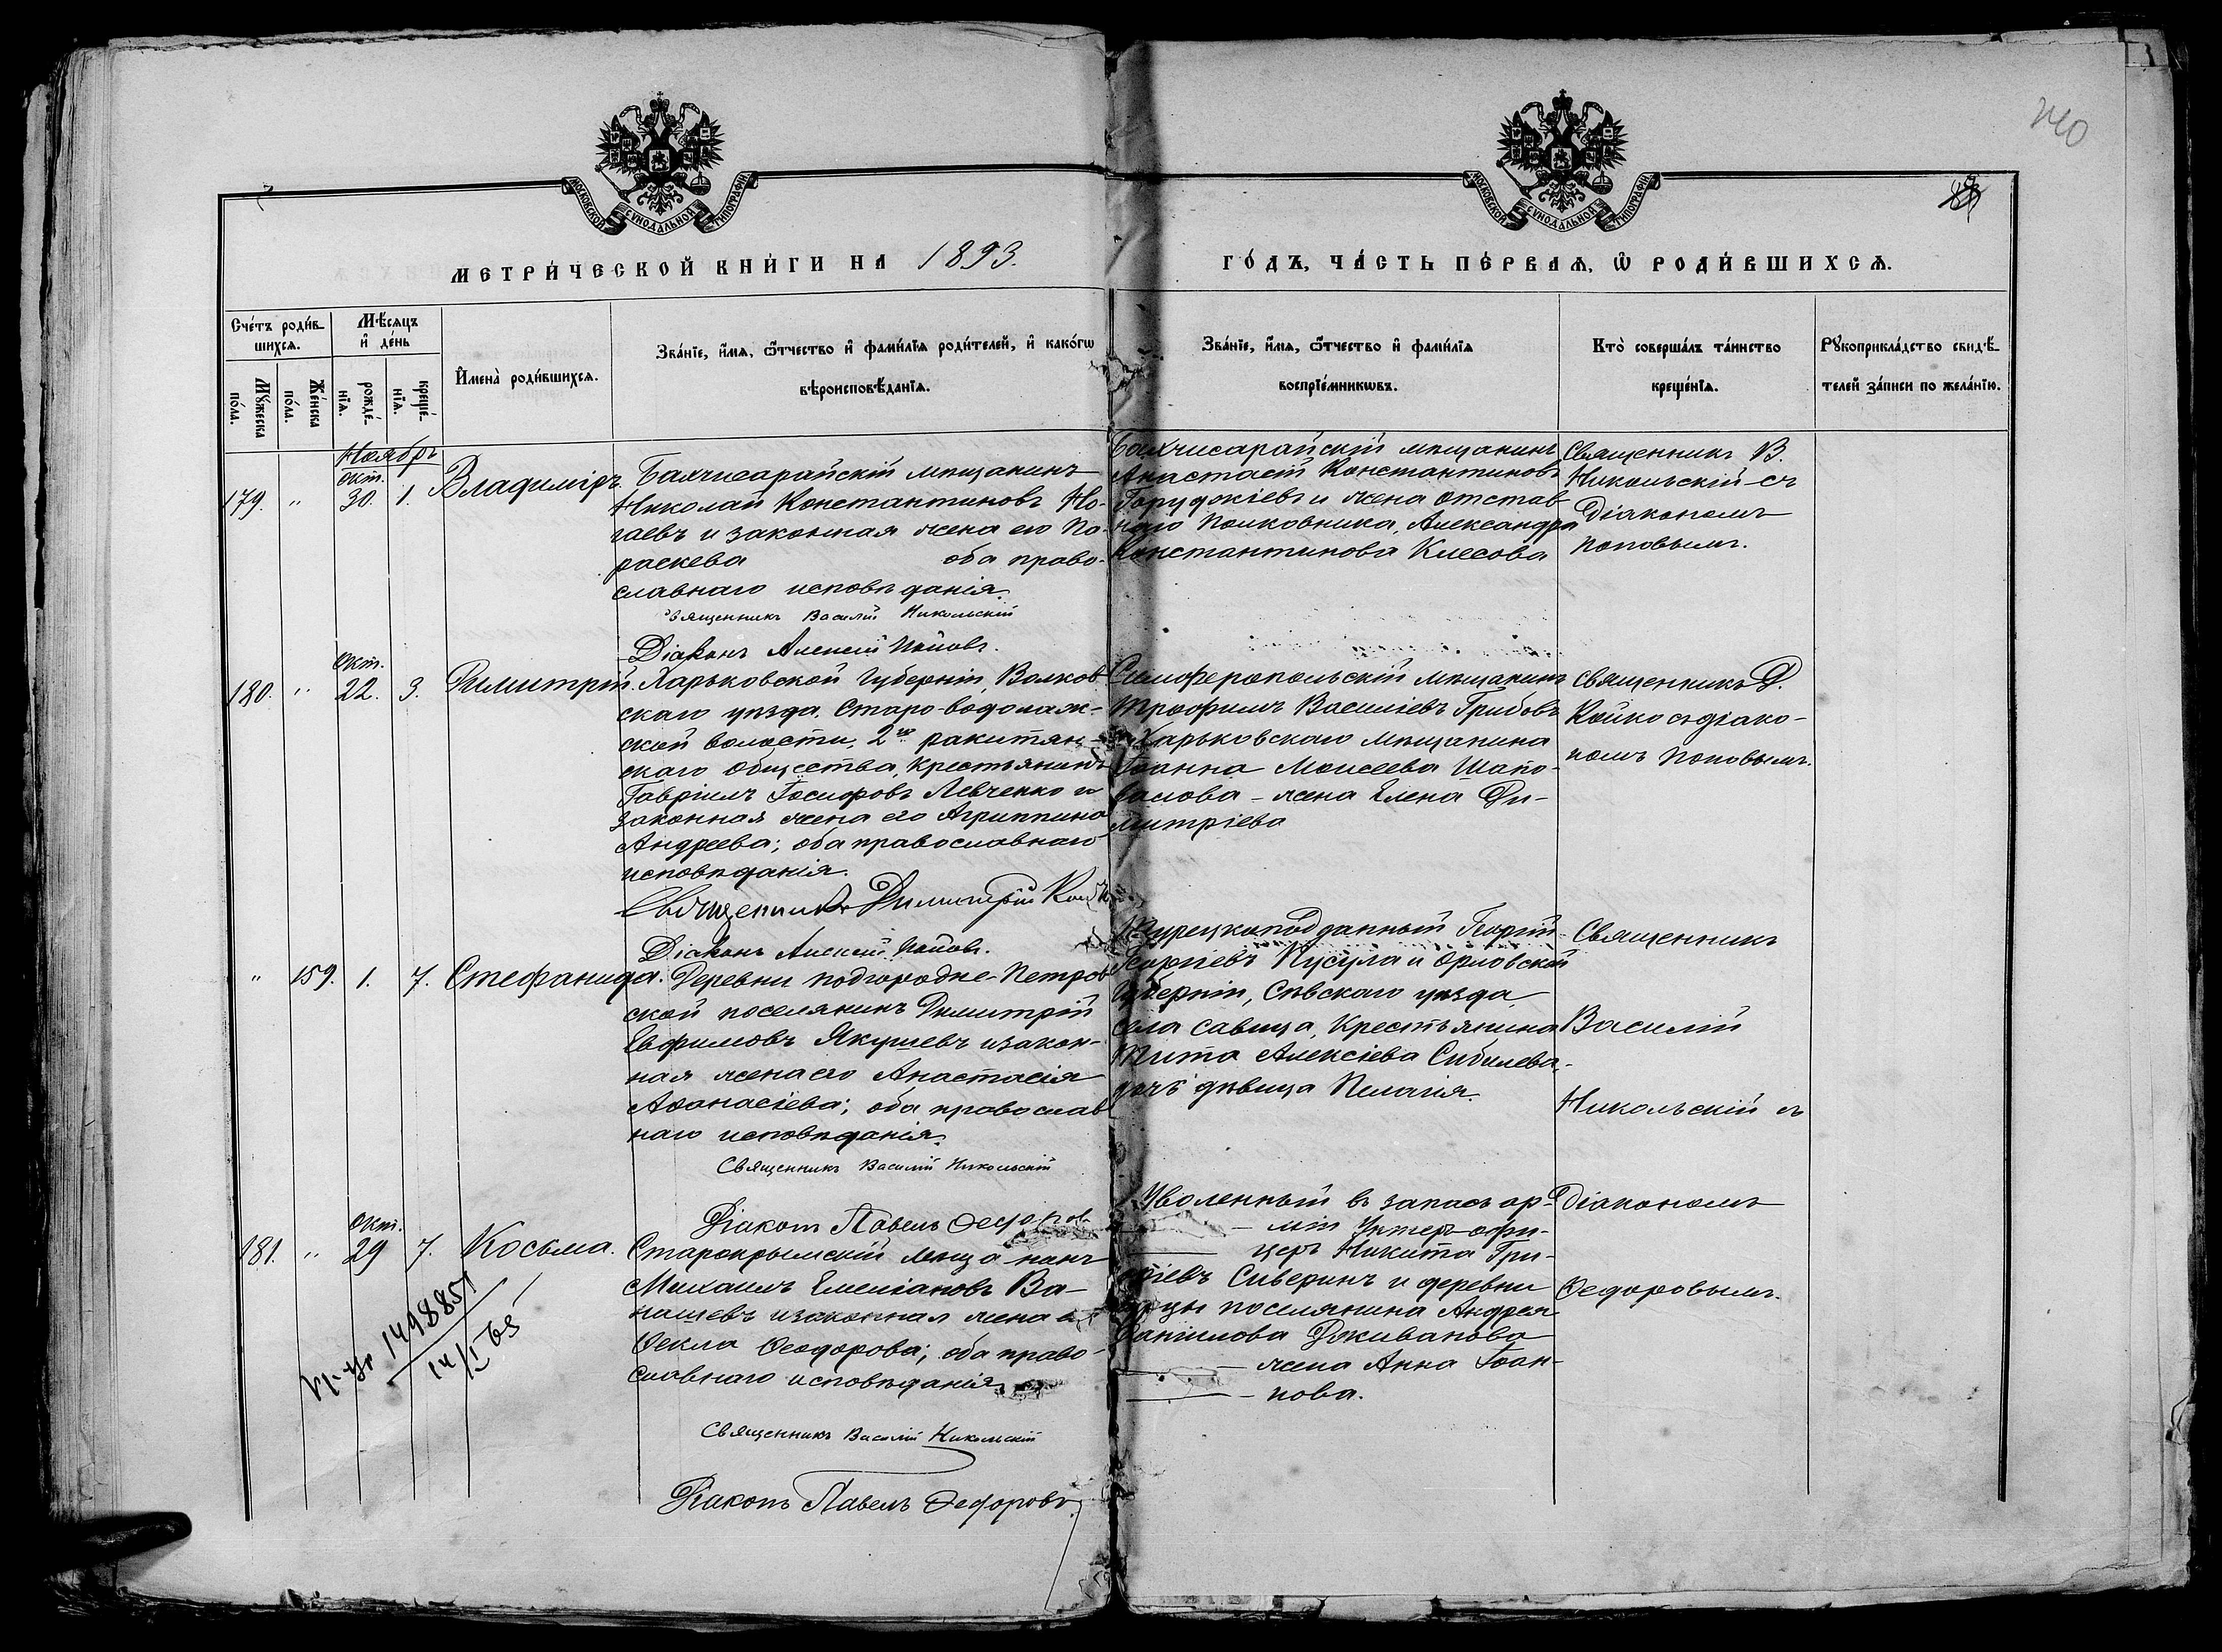 240
89
МОСКОВСКОЙ СѴНОДАЛЬНОЙ ТИПОГРАФІИ
МОСКОВСКОЙ СѴНОДАЛЬНОЙ ТИПОГРАФІИ
МЕТРИ́ЧЕСКОЙ КНИ́ГИ НА 1893.
ГО́ДЪ, ЧА́СТЬ ПЕ́РВАЯ, Ѡ҆ РОДИ́ВШИХСЯ.
Сче́тъ роди́в-
шихся.
Мѹжеска по́ла.
Же́нска по́ла.
Мѣ́сяцъ
и҆ де́нь
рожде́-
нїя.
креще́-
нїя.
И҆мена̀ роди́вшихся.
Зва́нїе, и҆́мя, ѻ҆́тчество и҆ фами́лїя роди́телей, и҆ како́гѡ
вѣроисповѣ́данїя.
Зва́нїе, и҆́мя, ѻ҆́тчество и҆ фами́лїя
воспрїе́мникѡвъ.
Кто̀ соверша́лъ та́инство
креще́нїя.
Рѹкоприкла́дство свидѣ́-
телей за́писи по жела́нїю.
Ноябрь
179. " окт. 30. 1. Владиміръ
Бахчисарайскій мѣщанинъ
Николай Константиновъ Но-
гаевъ и законная жена его Па-
раскева оба право-
славнаго исповѣданія.
Священникъ Василій Никольскій
Діаконъ Алексій Поповъ.
Бахчисарайскій мѣщанинъ
Анастасій Константиновъ
Горуджіевъ и жена отстав
наго полковника, Александра
Константинова Клесова
Священникъ В.
Никольскій съ
Діакономъ
Поповымъ.
180. " Окт. 22. 3. Димитрій.
Харьковской Губерніи, Валков
скаго уѣзда, Старо-водолаж-
ской волости, 2го ракитян-
скаго общества, крестьянинъ
Гавріилъ Іосифовъ Левченко и
законная жена его Агриппина
Андреева; оба православнаго
исповѣданія.
Священникъ Димитрій Койко
Діаконъ Алексій Поповъ.
Симферопольскій мѣщанинъ
Трофимъ Василіевъ Грибовъ
и Харьковскаго мѣщанина
Іоанна Моисеева Шапо-
валова - жена Елена Ди-
митріева
священникъ Д.
Койко съ діако-
номъ Поповымъ.
" 159. 1. 7. Стефанида.
Деревни подгородне-Петров
ской поселянинъ Димитрій
Евфимовъ Якушевъ и закон-
ная жена его Анастасія
Аѳанасіева; оба православ
наго исповѣданія.
Священникъ Василій Никольскій
Діаконъ Павелъ Ѳедоров
Турецкоподданный Георгій
Георгіевъ Пусула и Орловской
Губерніи, Сѣвскаго уѣзда
села Савица, Крестьянина
Тита Алексіева Сибилева,-
дочь дѣвица Пелагія.
Священникъ
Василій
Никольскій съ
Діакономъ
Ѳедоровымъ.
181. " Окт. 29 7. Косьма.
Старокрымскій мѣща-нинъ
Михаилъ Емеліановъ Ва-
нашевъ и законная жена е
Ѳекла Ѳеодорова; оба право-
славнаго исповѣданія
Священникъ Василій Никольскій
Діаконъ Павелъ Ѳедоровъ
Уволенный въ запасъ ар-
міи Унтеръ-офи-
церъ Никита Гри-
Сиверинъ и деревни
поселянина Андрея
Даніилова Дживанова
- жена Анна Іоан-
нова.
1498851
14/I 65